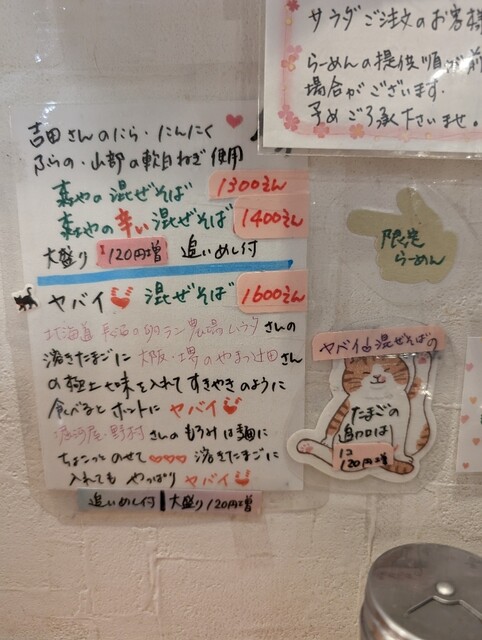 サラダご注文のお客様
らーめんの提供順が前
場合がございます.
予めご了承下さいませ.
吉田さんのにら・にんにく
ふらの・山部の軟白ねぎ 使用
森やの混ぜそば 1300えん
森やの辛い混ぜそば 1400えん
大盛り 120円増 追いめし付
ヤバイ 混ぜそば 1600えん
北海道 長沼の卵ラン農場ムラタさんの
溶きたまごに 大阪・堺のやまつ辻田さん
の極上七味を入れて すきやきのように
食べると ホントに ヤバイ
堀河屋・野村さんの もろみは麺に
ちょこっとのせて 溶きたまごに
入れても やっぱり ヤバイ
追いめし付 大盛り120円増
限定
らーめん
ヤバイ混ぜそばの
たまごの
追加は
1コ
120円増